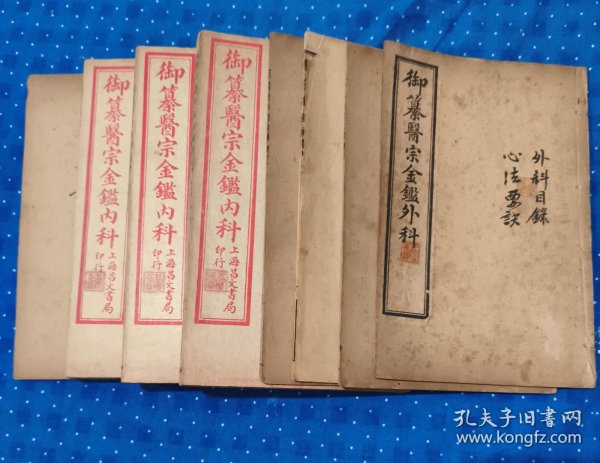 御纂醫宗金鑑內科
上海昌文書局
印行
御纂醫宗金鑑內科
上海昌文書局
印行
御纂醫宗金鑑內科
上海昌文書局
印行
御纂醫宗金鑑外科
外科目錄
心法要訣
孔夫子旧书网
www.kongfz.com